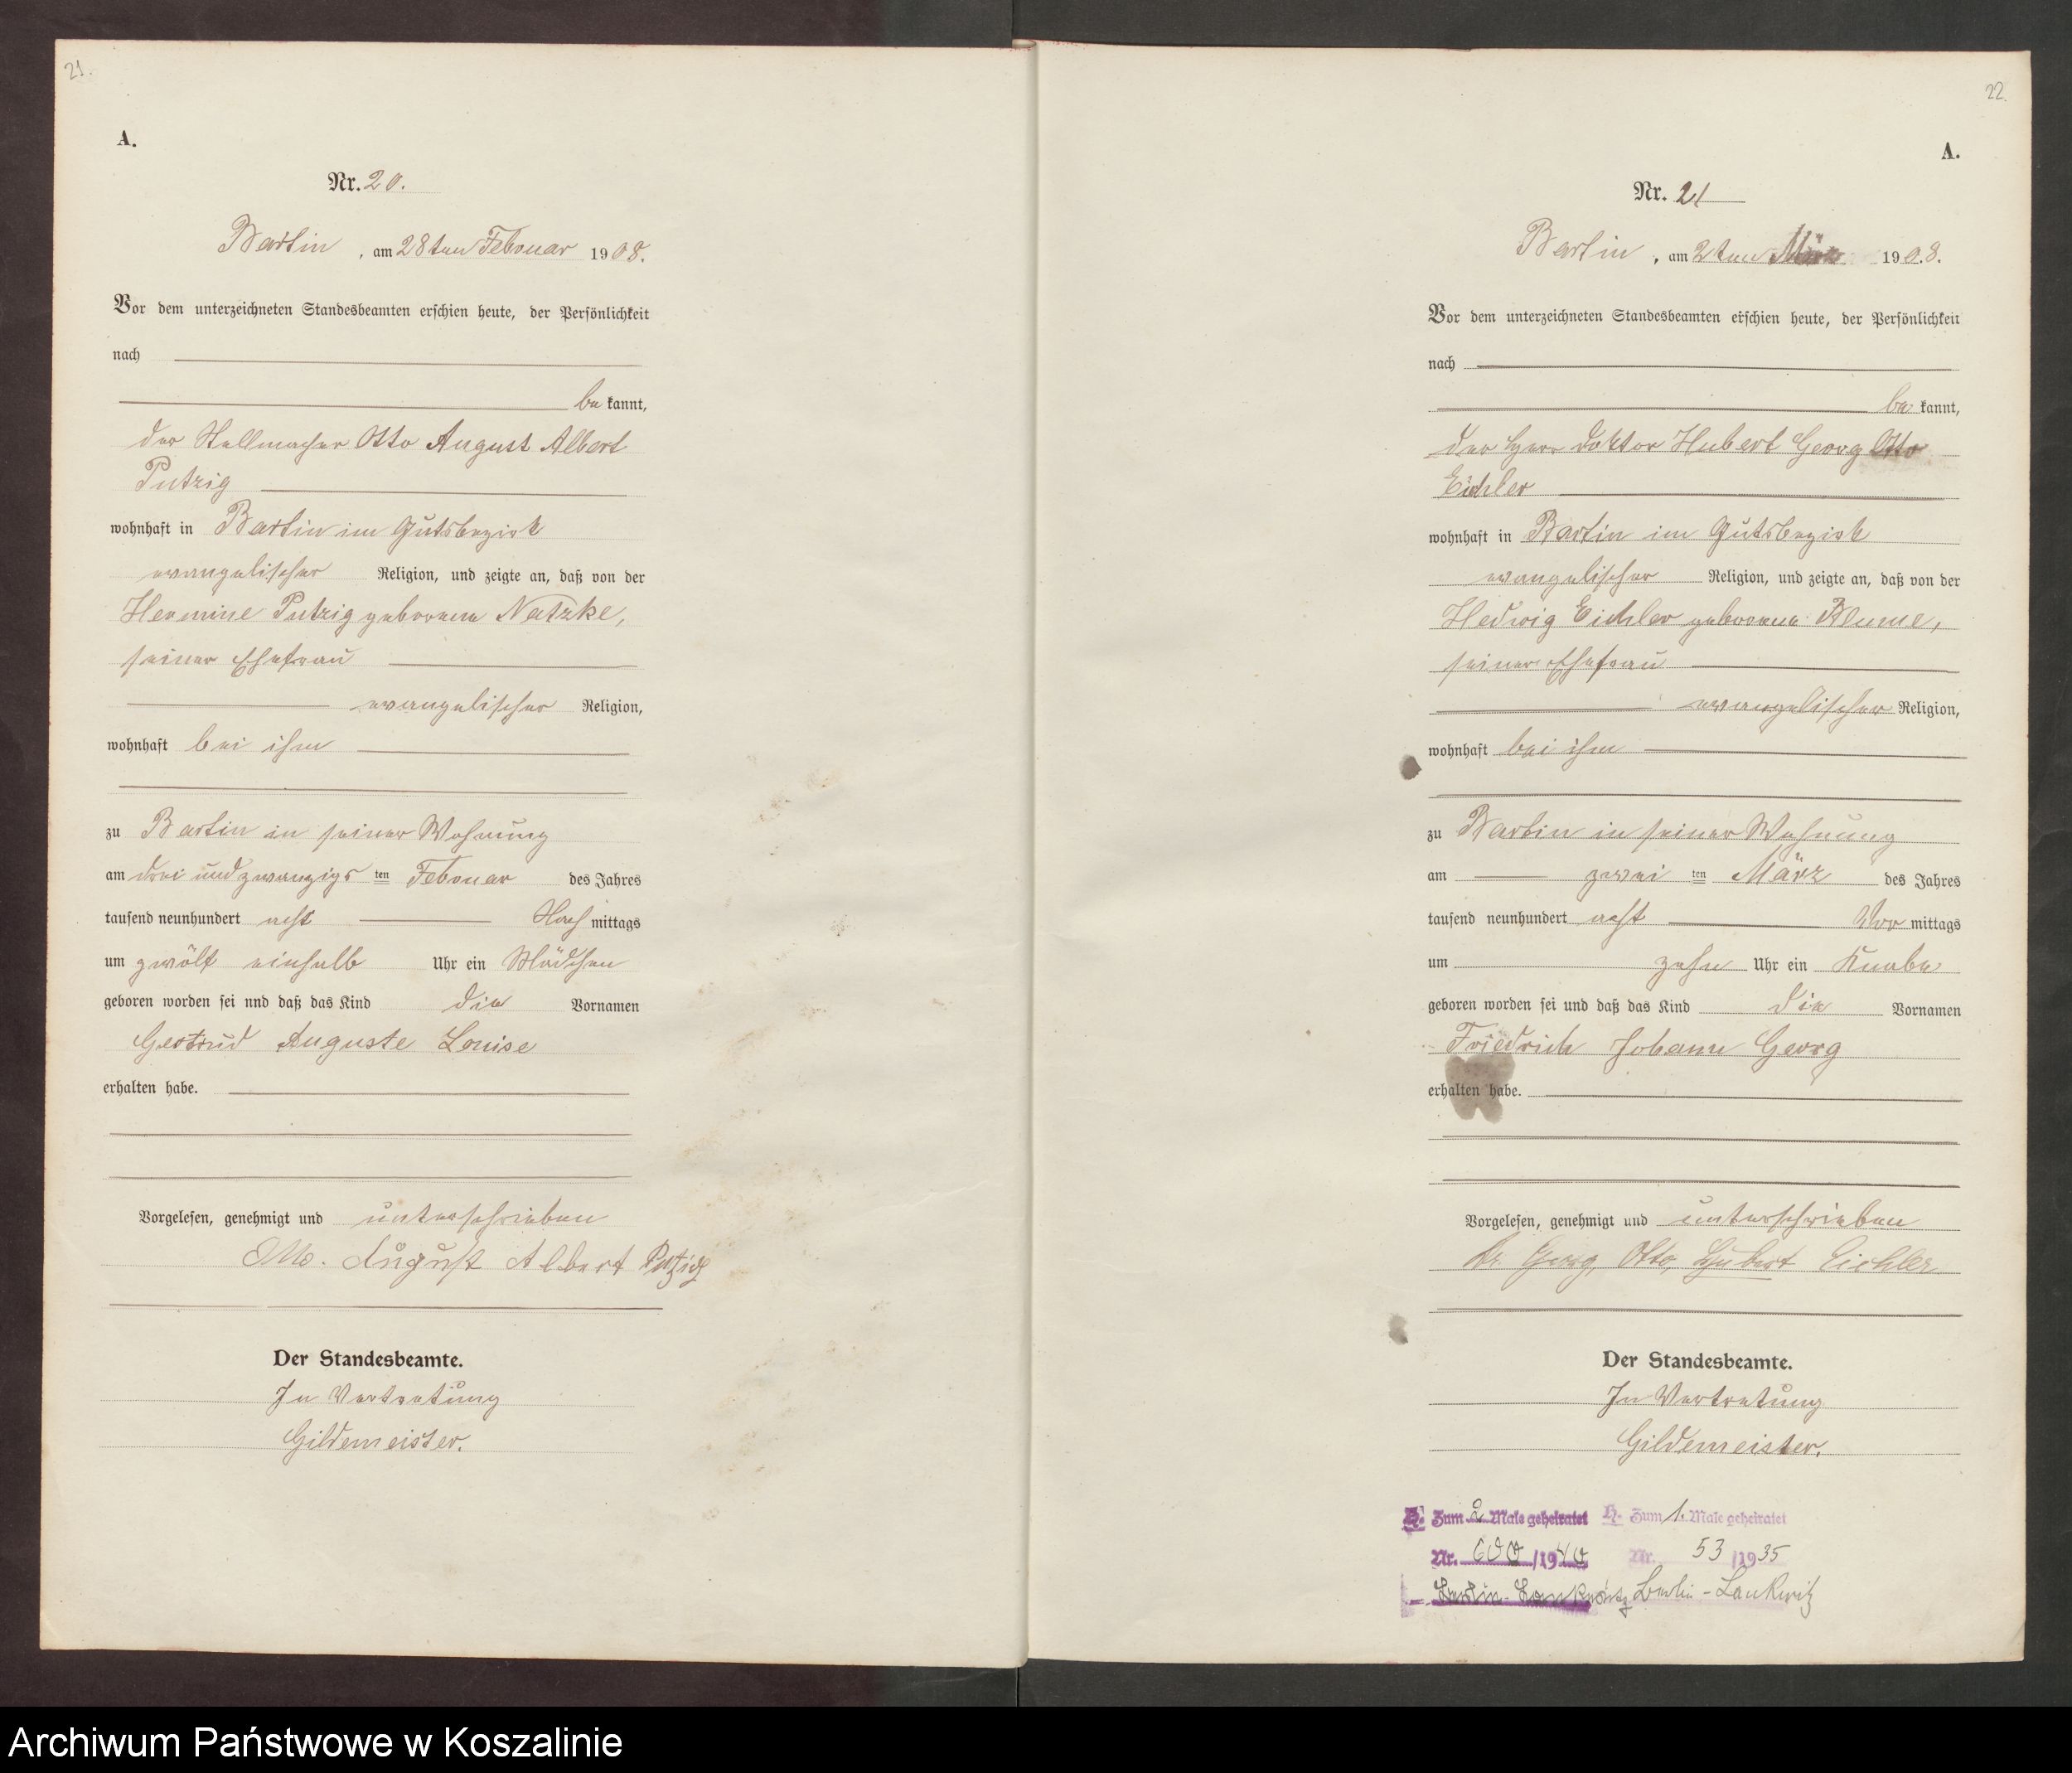 21.
A.
Nr. 20.
Bartin, am 28ten Februar 1908.
Vor dem unterzeichneten Standesbeamten erschien heute, der Persönlichkeit
nach
be kannt,
der Stellmacher Otto August Albert
Putzig
wohnhaft in Bartin im Gutsbezirk
evangelischer Religion, und zeigte an, daß von der
Hermine Putzig geborene Natzke,
seiner Ehefrau
evangelischer Religion,
wohnhaft bei ihm
zu Bartin in seiner Wohnung
am drei und zwanzigs ten Februar des Jahres
tausend neunhundert acht Nach mittags
um zwölf einhalb Uhr ein Mädchen
geboren worden sei und daß das Kind die Vornamen
Gertrud Auguste Louise
erhalten habe.
Vorgelesen, genehmigt und unterschrieben
Otto. August Albert Putzig
Der Standesbeamte.
In Vertretung
Gildemeister.
22.
A.
Nr. 21
Bartin, am 2ten März 1908.
Vor dem unterzeichneten Standesbeamten erschien heute, der Persönlichkeit
nach
be kannt,
der Herr Doktor Hubert Georg Otto
Eichler
wohnhaft in Bartin im Gutsbezirk
evangelischer Religion, und zeigte an, daß von der
Hedwig Eichler geborene Blume,
seiner Ehefrau
evangelischer Religion,
wohnhaft bei ihm
zu Bartin in seiner Wohnung
am zwei ten März des Jahres
tausend neunhundert acht Vor mittags
um zehn Uhr ein Knabe
geboren worden sei und daß das Kind die Vornamen
Friedrich Johann Georg
erhalten habe.
Vorgelesen, genehmigt und unterschrieben
Dr. Georg, Otto, Hubert Eichler
Der Standesbeamte.
In Vertretung
Gildemeister.
H. Zum 2 Male geheiratet H. Zum 1. Male geheiratet
Nr. 600/1940 Nr. 53/1935
Berlin-Lankwitz Berlin-Lankwitz
Archiwum Państwowe w Koszalinie